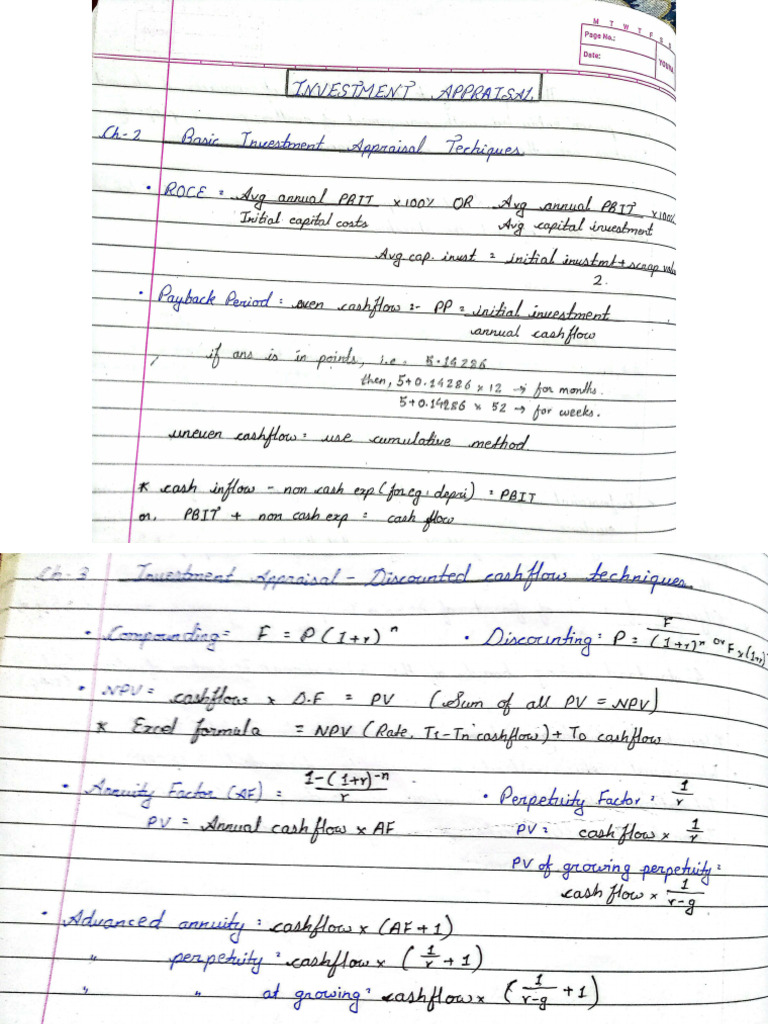 M T W T F S S
Page No.:
Date:
YOUVA
INVESTMENT APPRAISAL
Ch-2 Basic Investment Appraisal Techiques
• ROCE = Avg annual PBIT x100% OR Avg annual PBIT x100%
Initial capital costs Avg capital investment
Avg cap. invst = initial invstmt + scrap valu
2.
• Payback Period: even cashflow :- PP = initial investment
annual cashflow
if ans is in points, i.e. 5.14286
then, 5+0.14286 x 12 → for months.
5+0.14286 x 52 → for weeks.
uneven cashflow: use cumulative method
* cash inflow - non cash exp (for eg: depri) = PBIT
or, PBIT + non cash exp = cash flow
Ch-3 Investment Appraisal - Discounted cashflow techniques
• Compounding = F = P(1+r)ⁿ • Discounting: P = F/(1+r)ⁿ or F x (1+r)
• NPV = cashflow x D.F = PV (Sum of all PV = NPV)
* Excel formula = NPV (Rate, T1-Tn cashflow) + T0 cashflow
• Annuity Factor (AF) = 1-(1+r)⁻ⁿ/r • Perpetuity Factor: 1/r
PV = Annual cashflow x AF PV: cashflow x 1/r
PV of growing perpetuity:
cashflow x 1/r-g
• Advanced annuity: cashflow x (AF+1)
" perpetuity: cashflow x (1/r + 1)
" " at growing: cashflow x (1/r-g + 1)